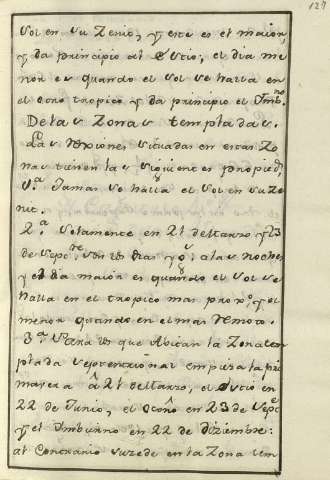 127
Sol en su Zenit, y este es el maior,
y da principio al Estio; el dia me
nor es quando el Sol se halla en
el otro tropico y da principio el Imbno.
De las Zonas templadas.
Las Rexiones situadas en estas Zo
nas tienen las siguientes propieds
1.a Jamas se halla el Sol en su Ze
nit.
2.a Solamente en 21 de Marzo y 23
de Sepre. son los dias ygs. a las noches
y el dia maior es quando el Sol se
halla en el tropico mas proxo. y el
menor quando en el mas remoto.
3.a Para los que abitan la Zona tem
plada Septentrional empieza la pri
mavera â 21 de Marzo, el Estio en
22 de Junio, el otoño en 23 de Sepe
y el Imbierno en 22 de Diziembre:
al Contrario suzede en la Zona tem